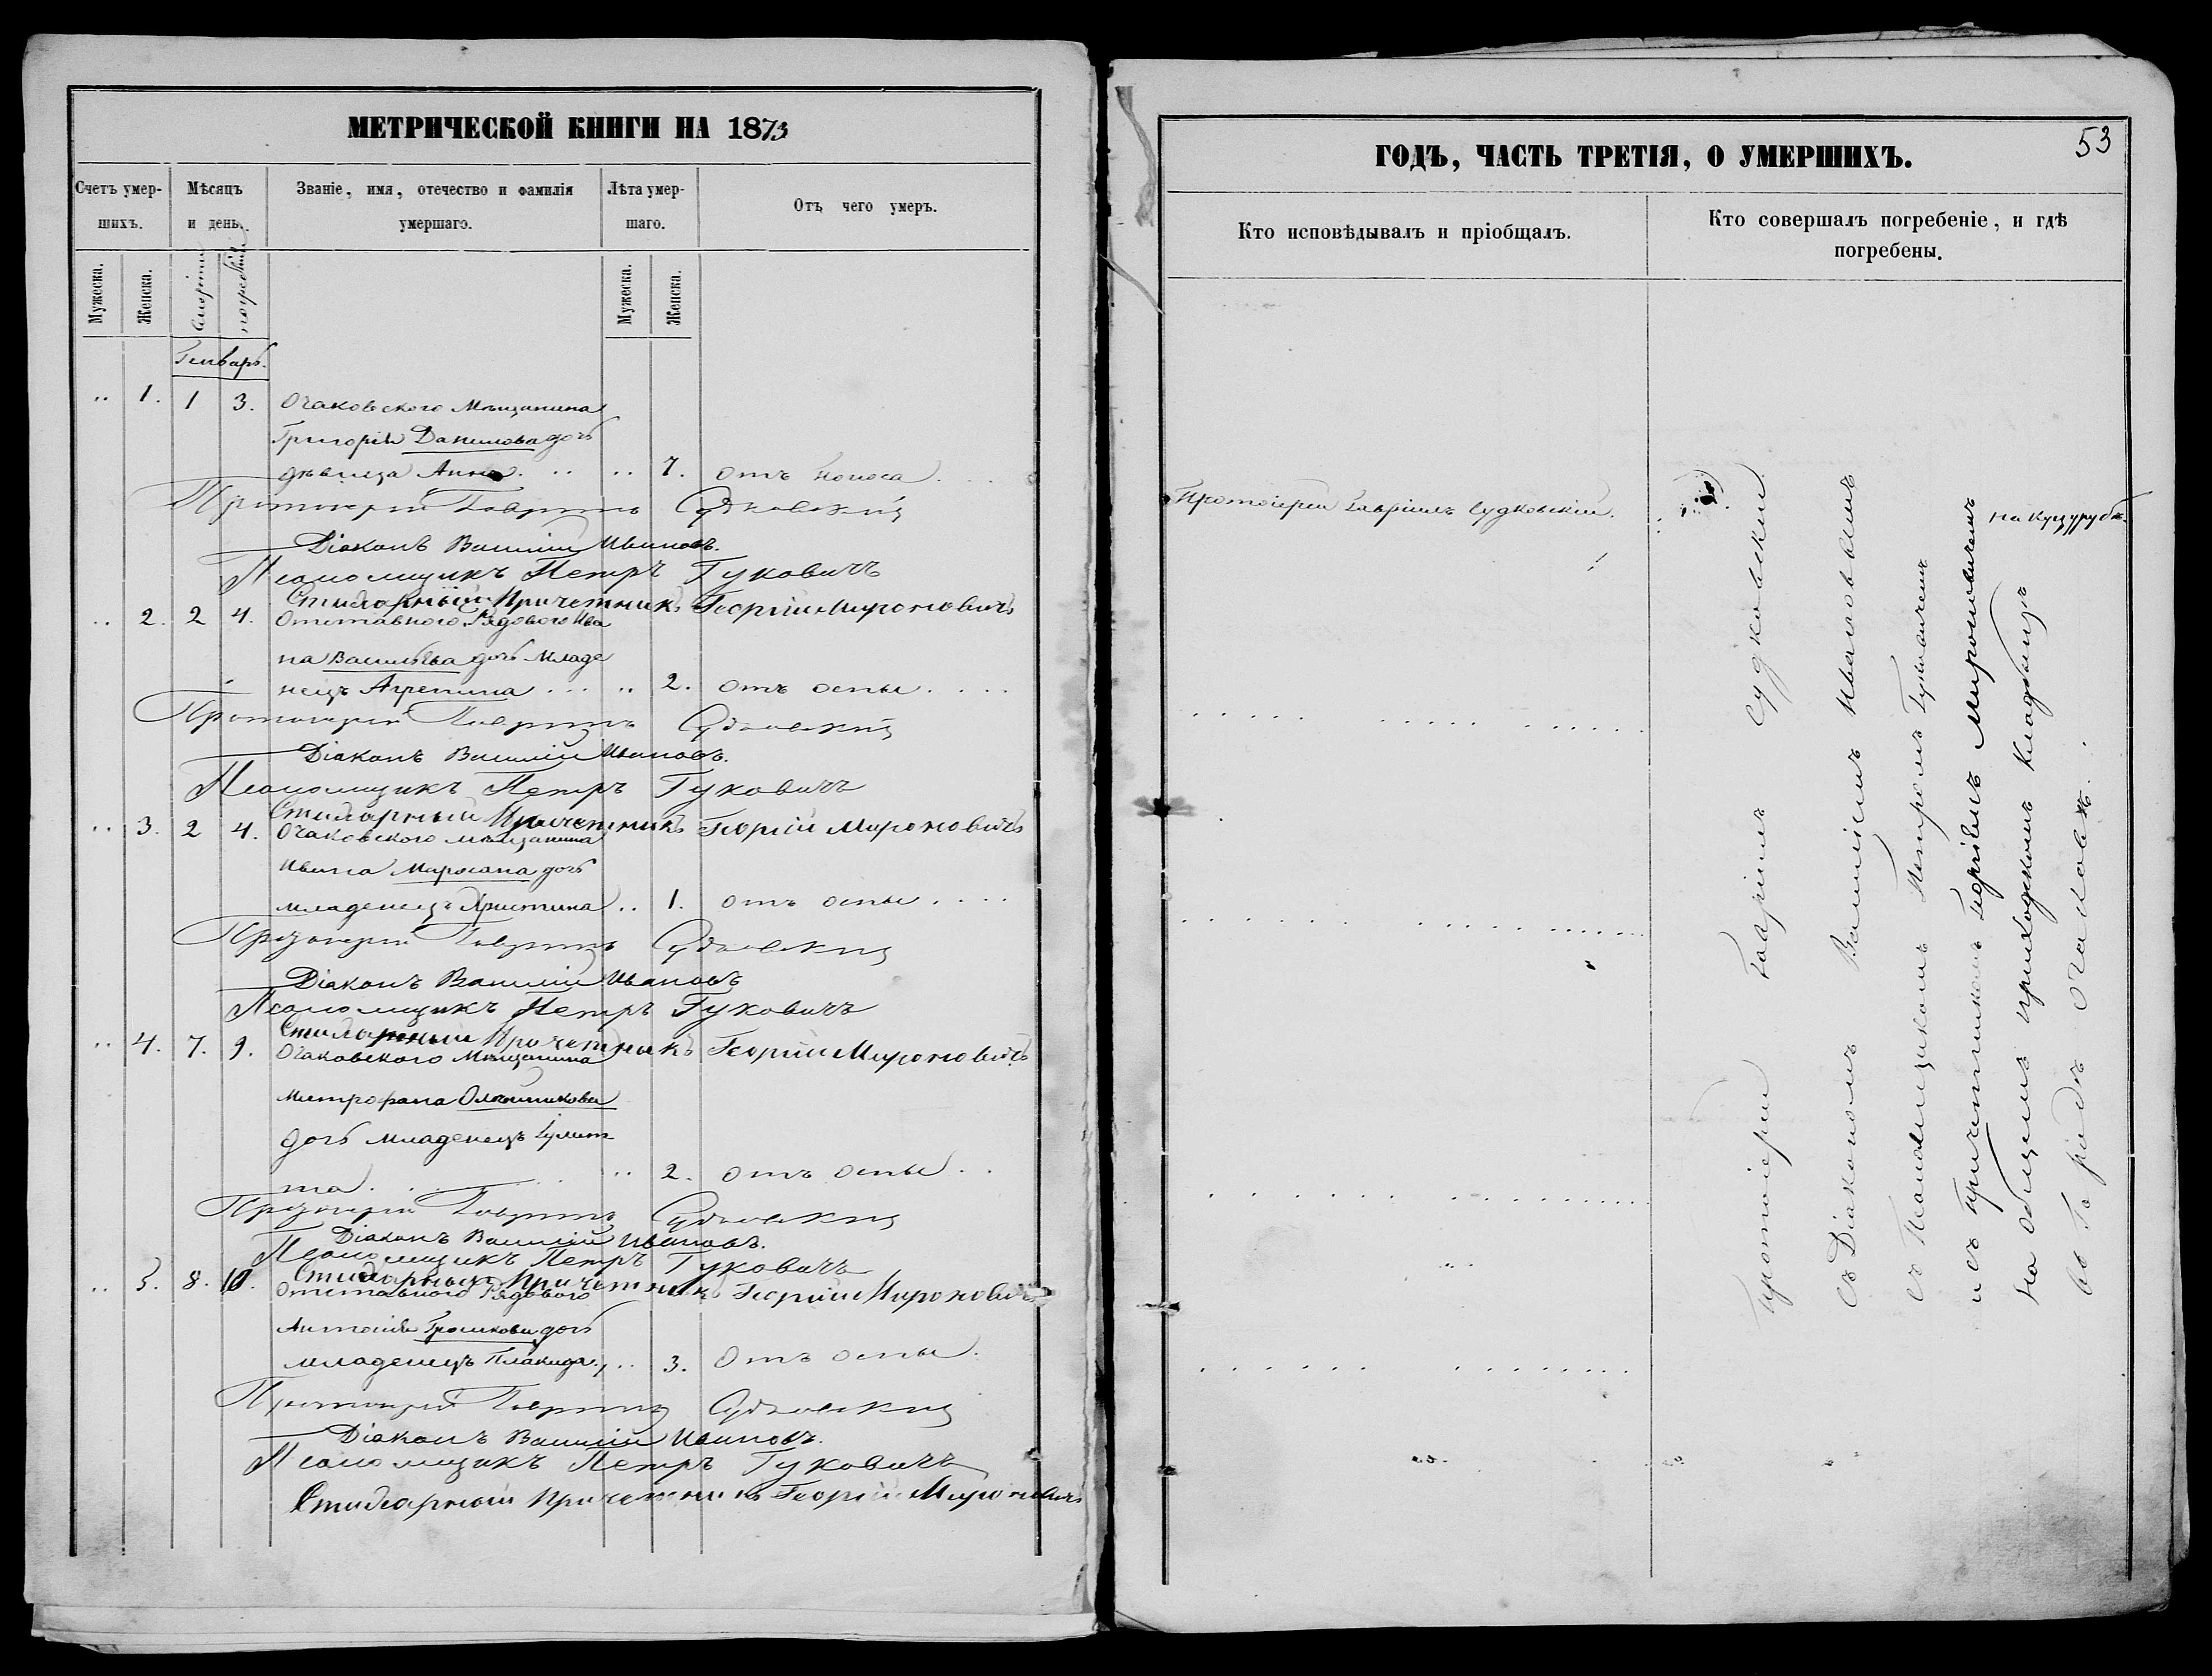 МЕТРИЧЕСКОЙ КНИГИ НА 1873
Счетъ умер-
шихъ.
Мѣсяцъ
и день.
Званіе, имя, отечество и фамилія
умершаго.
Лѣта умер-
шаго.
Отъ чего умеръ.
Мужеска.
Женска.
смерти
погребенія
Мужеска.
Женска.
Генварь.
" 1. 1 3. Очаковского Мѣщанина
Григорія Данилова дочь
дѣвица Анна . . . " 7. отъ поноса . . .
Протоіерей Гавріилъ Судковскій
Діаконъ Василій Ивановъ.
Псаломщикъ Петръ Гуковичъ
Стихарный Причетникъ Георгій Мироновичъ
" 2. 2 4. Отставного Рядового Ива
на Васильева дочь Младе
нецъ Агрепина . . . " 2. отъ оспы . . . .
Протоіерей Гавріилъ Судковскій
Діаконъ Василій Ивановъ.
Псаломщикъ Петръ Гуковичъ
Стихарный Причетникъ Георгій Мироновичъ
" 3. 2 4. Очаковского мѣщанина
Ивана дочь
младенецъ Христина " 1. отъ оспы . . . .
Протоіерей Гавріилъ Судковскій
Діаконъ Василій Ивановъ
Псаломщикъ Петръ Гуковичъ
Стихарный Причетникъ Георгій Мироновичъ
" 4. 7. 9. Очаковского Мѣщанина
Митрофана Олѣйникова
дочь младенецъ Гулит
та . . . " 2. отъ оспы . .
Протоіерей Гавріилъ Судковскій
Діаконъ Василій Ивановъ.
Псаломщикъ Петръ Гуковичъ
Стихарный Причетникъ Георгій Мироновичъ
" 5. 8. 10. Отставного Рядового
Антонія дочь
младенецъ Плакида " 3. Отъ оспы.
Протоіерей Гавріилъ Судковскій
Діаконъ Василій Ивановъ.
Псаломщикъ Петръ Гуковичъ
Стихарный Причетникъ Георгій Мироновичъ
53
ГОДЪ, ЧАСТЬ ТРЕТІЯ, О УМЕРШИХЪ.
Кто исповѣдывалъ и пріобщалъ.
Кто совершалъ погребеніе, и гдѣ
погребены.
Протоіерей Гавріилъ Судковскій.
Протоіерей Гавріилъ Судковскій
съ Діакономъ Василіемъ Ивановымъ
съ Псаломщикомъ Петромъ Гуковичемъ
и съ причетникомъ Георгіемъ Мироновичемъ
на общемъ приходскомъ кладбищѣ
въ городѣ Очаковѣ.